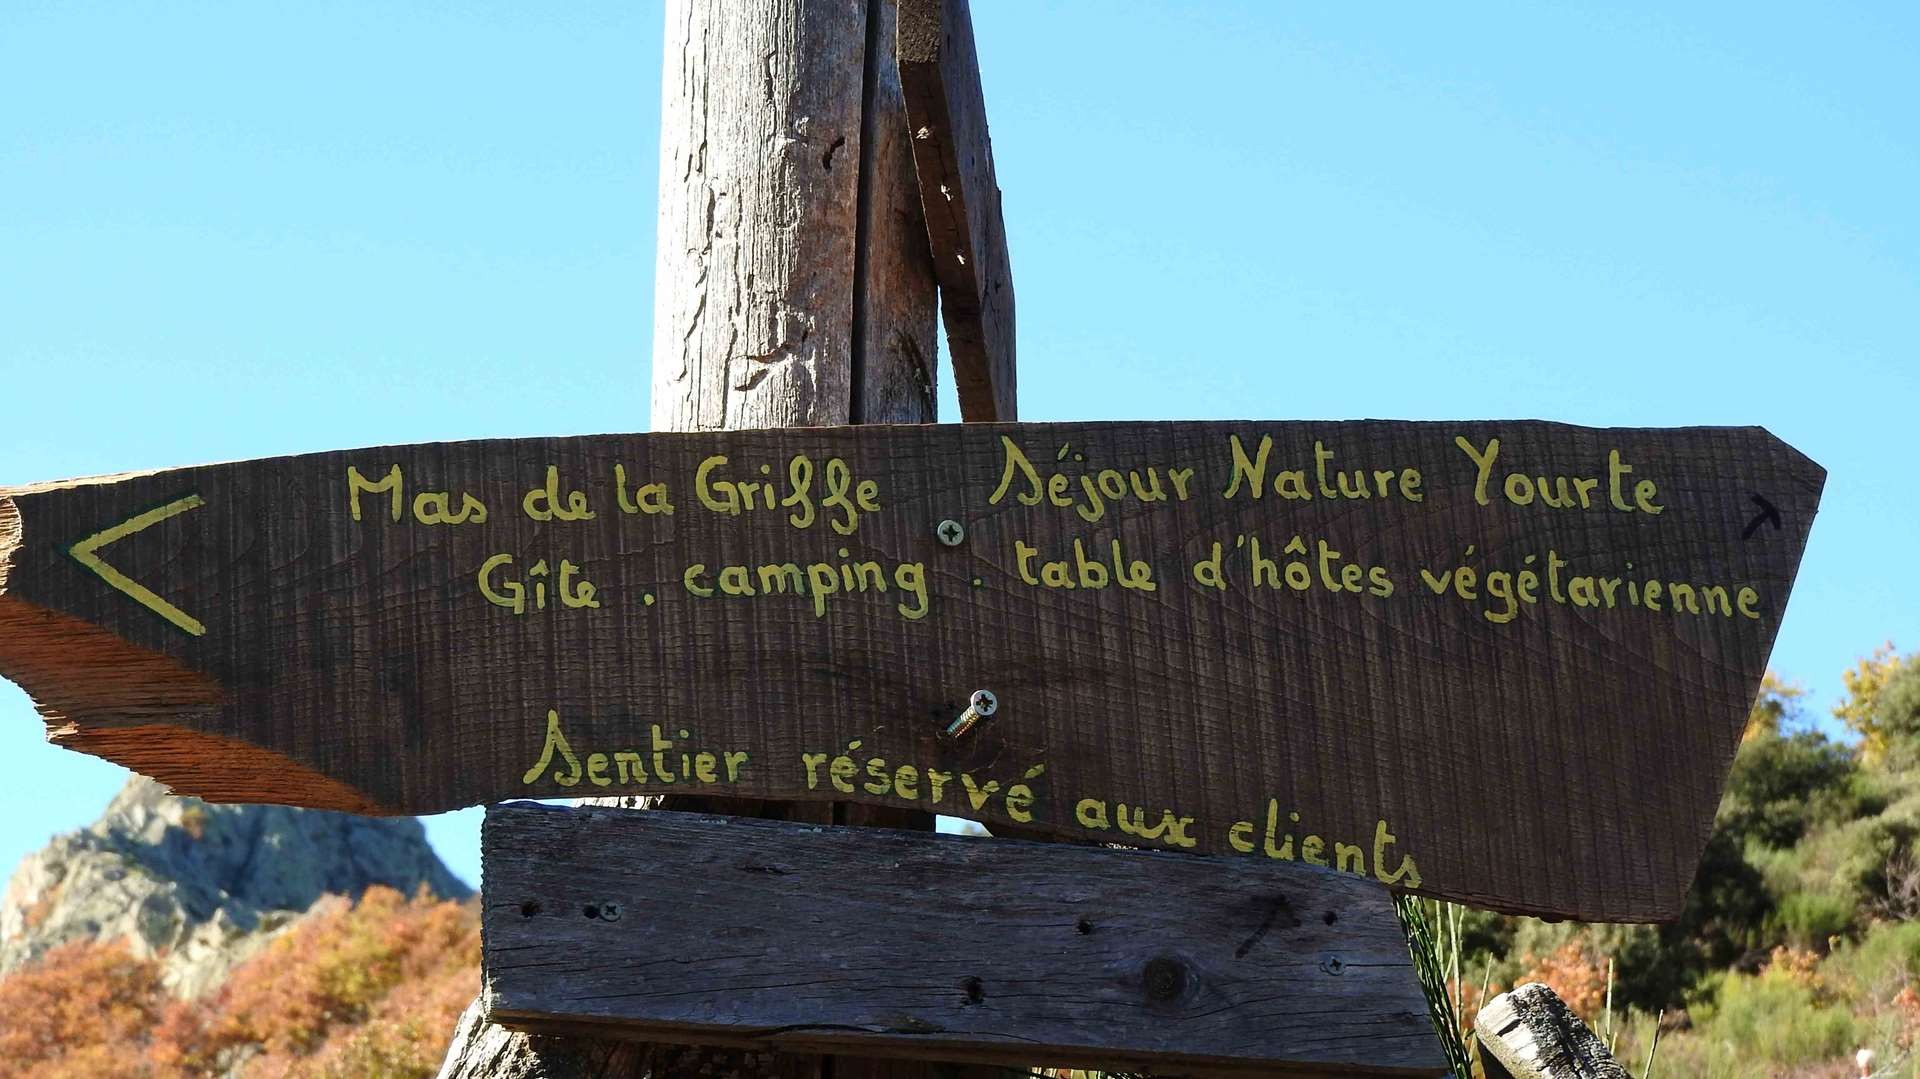 Mas de la Griffe Séjour Nature Yourte
Gîte . camping . table d'hôtes végétarienne
Sentier réservé aux clients